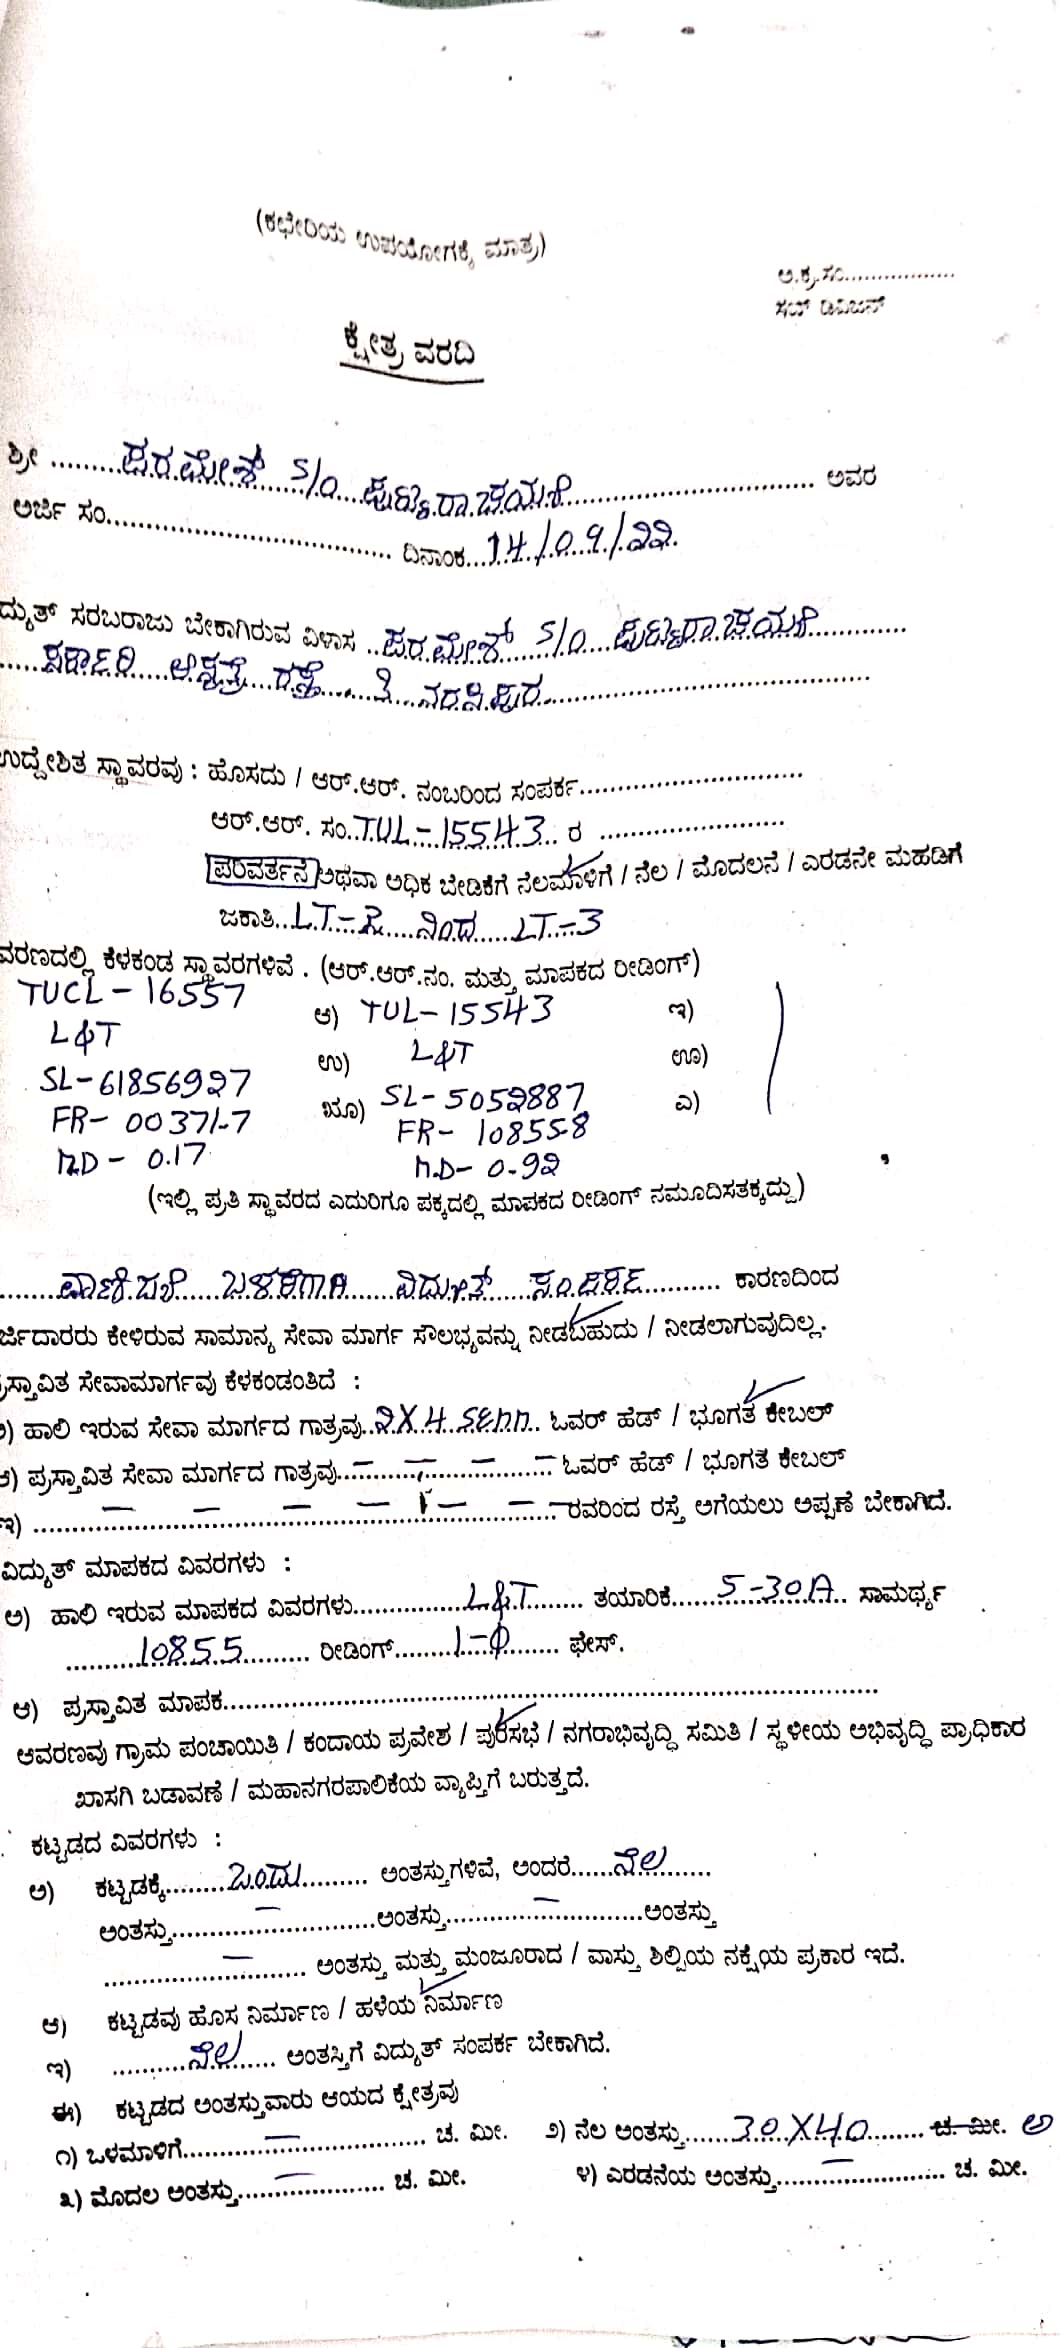 (ಕಛೇರಿಯ ಉಪಯೋಗಕ್ಕೆ ಮಾತ್ರ)
ಅ.ಕ್ರ.ಸಂ..................
ಸಬ್ ಡಿವಿಜನ್
ಕ್ಷೇತ್ರ ವರದಿ
ಶ್ರೀ .........ಪರಮೇಶ್ S/O ಪುಟ್ಟರಾಚಯ್ಯ.................. ಅವರ
ಅರ್ಜಿ ಸಂ.................................. ದಿನಾಂಕ...14/09/22.
ದ್ಯುತ್ ಸರಬರಾಜು ಬೇಕಾಗಿರುವ ವಿಳಾಸ ..ಪರಮೇಶ್ S/O ಪುಟ್ಟರಾಚಯ್ಯ.............
.....ಸರ್ಕಾರಿ ಆಸ್ಪತ್ರೆ ರಸ್ತೆ ತಿ ನರಸಿಪುರ..................
ಉದ್ದೇಶಿತ ಸ್ಥಾವರವು : ಹೊಸದು / ಆರ್.ಆರ್. ನಂಬರಿಂದ ಸಂಪರ್ಕ.........................
ಆರ್.ಆರ್. ಸಂ..TUL-15543.. ರ .........................
ಪರಿವರ್ತನೆ ಅಥವಾ ಅಧಿಕ ಬೇಡಿಕೆಗೆ ನೆಲಮಾಳಿಗೆ / ನೆಲ / ಮೊದಲನೆ / ಎರಡನೇ ಮಹಡಿಗೆ
ಜಕಾತಿ...LT-2 ನಿಂದ LT-3
ವರಣದಲ್ಲಿ ಕೆಳಕಂಡ ಸ್ಥಾವರಗಳಿವೆ . (ಆರ್.ಆರ್.ನಂ. ಮತ್ತು ಮಾಪಕದ ರೀಡಿಂಗ್)
TUCL-16557 ಆ) TUL-15543 ಇ)
L&T ಉ) L&T ಊ)
SL-61856927 ಋೂ) SL-5052887 ಎ)
FR- 00371-7 FR- 10855-8
MD - 0.17 M.D- 0-92
(ಇಲ್ಲಿ ಪ್ರತಿ ಸ್ಥಾವರದ ಎದುರಿಗೂ ಪಕ್ಕದಲ್ಲಿ ಮಾಪಕದ ರೀಡಿಂಗ್ ನಮೂದಿಸತಕ್ಕದ್ದು)
........ವಾಣಿಜ್ಯ ಬಳಕೆಗಾಗಿ ವಿದ್ಯುತ್ ಸಂಪರ್ಕ.......... ಕಾರಣದಿಂದ
ರ್ಜಿದಾರರು ಕೇಳಿರುವ ಸಾಮಾನ್ಯ ಸೇವಾ ಮಾರ್ಗ ಸೌಲಭ್ಯವನ್ನು ನೀಡಬಹುದು / ನೀಡಲಾಗುವುದಿಲ್ಲ.
ಪ್ರಸ್ತಾವಿತ ಸೇವಾಮಾರ್ಗವು ಕೆಳಕಂಡಂತಿದೆ :
ಅ) ಹಾಲಿ ಇರುವ ಸೇವಾ ಮಾರ್ಗದ ಗಾತ್ರವು..2X4 SEMM.. ಓವರ್ ಹೆಡ್ / ಭೂಗತ ಕೇಬಲ್
ಆ) ಪ್ರಸ್ತಾವಿತ ಸೇವಾ ಮಾರ್ಗದ ಗಾತ್ರವು........................ ಓವರ್ ಹೆಡ್ / ಭೂಗತ ಕೇಬಲ್
ಇ) ............................................................ರವರಿಂದ ರಸ್ತೆ ಅಗೆಯಲು ಅಪ್ಪಣೆ ಬೇಕಾಗಿದೆ.
ವಿದ್ಯುತ್ ಮಾಪಕದ ವಿವರಗಳು :
ಅ) ಹಾಲಿ ಇರುವ ಮಾಪಕದ ವಿವರಗಳು...............L&T........ ತಯಾರಿಕೆ.......5-30A.. ಸಾಮರ್ಥ್ಯ
...........10855.......... ರೀಡಿಂಗ್........1-Φ........ ಫೇಸ್.
ಆ) ಪ್ರಸ್ತಾವಿತ ಮಾಪಕ..........................................................................
ಆವರಣವು ಗ್ರಾಮ ಪಂಚಾಯಿತಿ / ಕಂದಾಯ ಪ್ರವೇಶ / ಪುರಸಭೆ / ನಗರಾಭಿವೃದ್ಧಿ ಸಮಿತಿ / ಸ್ಥಳೀಯ ಅಭಿವೃದ್ಧಿ ಪ್ರಾಧಿಕಾರ
ಖಾಸಗಿ ಬಡಾವಣೆ / ಮಹಾನಗರಪಾಲಿಕೆಯ ವ್ಯಾಪ್ತಿಗೆ ಬರುತ್ತದೆ.
ಕಟ್ಟಡದ ವಿವರಗಳು :
ಅ) ಕಟ್ಟಡಕ್ಕೆ........ಒಂದು......... ಅಂತಸ್ತುಗಳಿವೆ, ಅಂದರೆ......ನೆಲ.......
ಅಂತಸ್ತು..........................ಅಂತಸ್ತು..........................ಅಂತಸ್ತು
.......................... ಅಂತಸ್ತು ಮತ್ತು ಮಂಜೂರಾದ / ವಾಸ್ತು ಶಿಲ್ಪಿಯ ನಕ್ಷೆಯ ಪ್ರಕಾರ ಇದೆ.
ಆ) ಕಟ್ಟಡವು ಹೊಸ ನಿರ್ಮಾಣ / ಹಳೆಯ ನಿರ್ಮಾಣ
ಇ) ..........ನೆಲ........ ಅಂತಸ್ತಿಗೆ ವಿದ್ಯುತ್ ಸಂಪರ್ಕ ಬೇಕಾಗಿದೆ.
ಈ) ಕಟ್ಟಡದ ಅಂತಸ್ತುವಾರು ಆಯದ ಕ್ಷೇತ್ರವು
೧) ಒಳಮಾಳಿಗೆ.............................. ಚ. ಮೀ. ೨) ನೆಲ ಅಂತಸ್ತು......30X40........ ಚ. ಮೀ. ಅ
೩) ಮೊದಲ ಅಂತಸ್ತು.................... ಚ. ಮೀ. ೪) ಎರಡನೆಯ ಅಂತಸ್ತು...................... ಚ. ಮೀ.